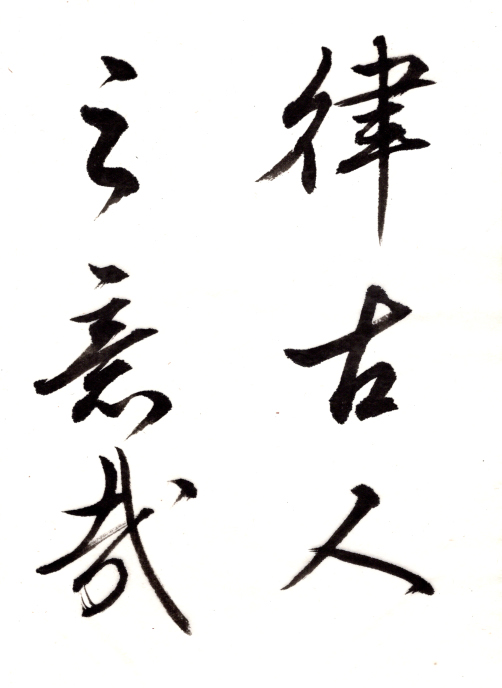 律古人
之意哉